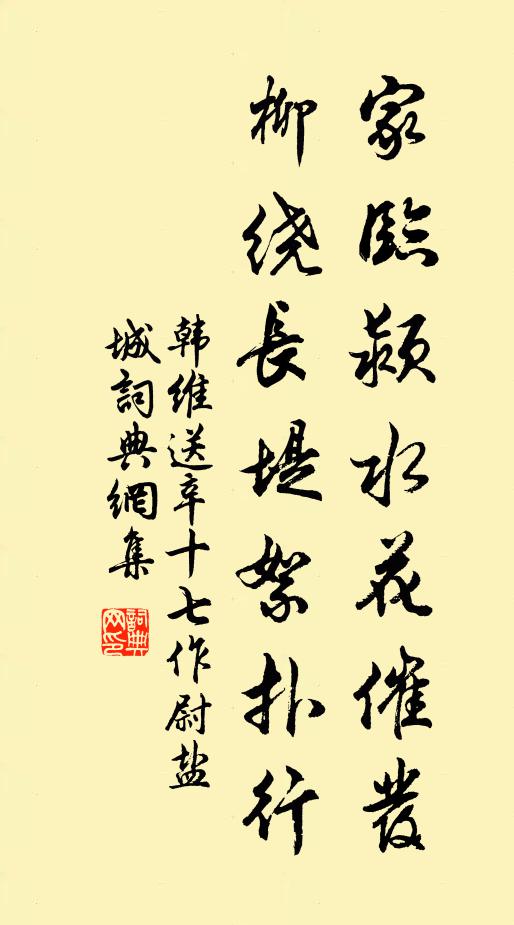 家臨潁水花催發
柳绕長堤絮扑行
韩維送辛十七作尉盐
城詞典網集
詞典
网印